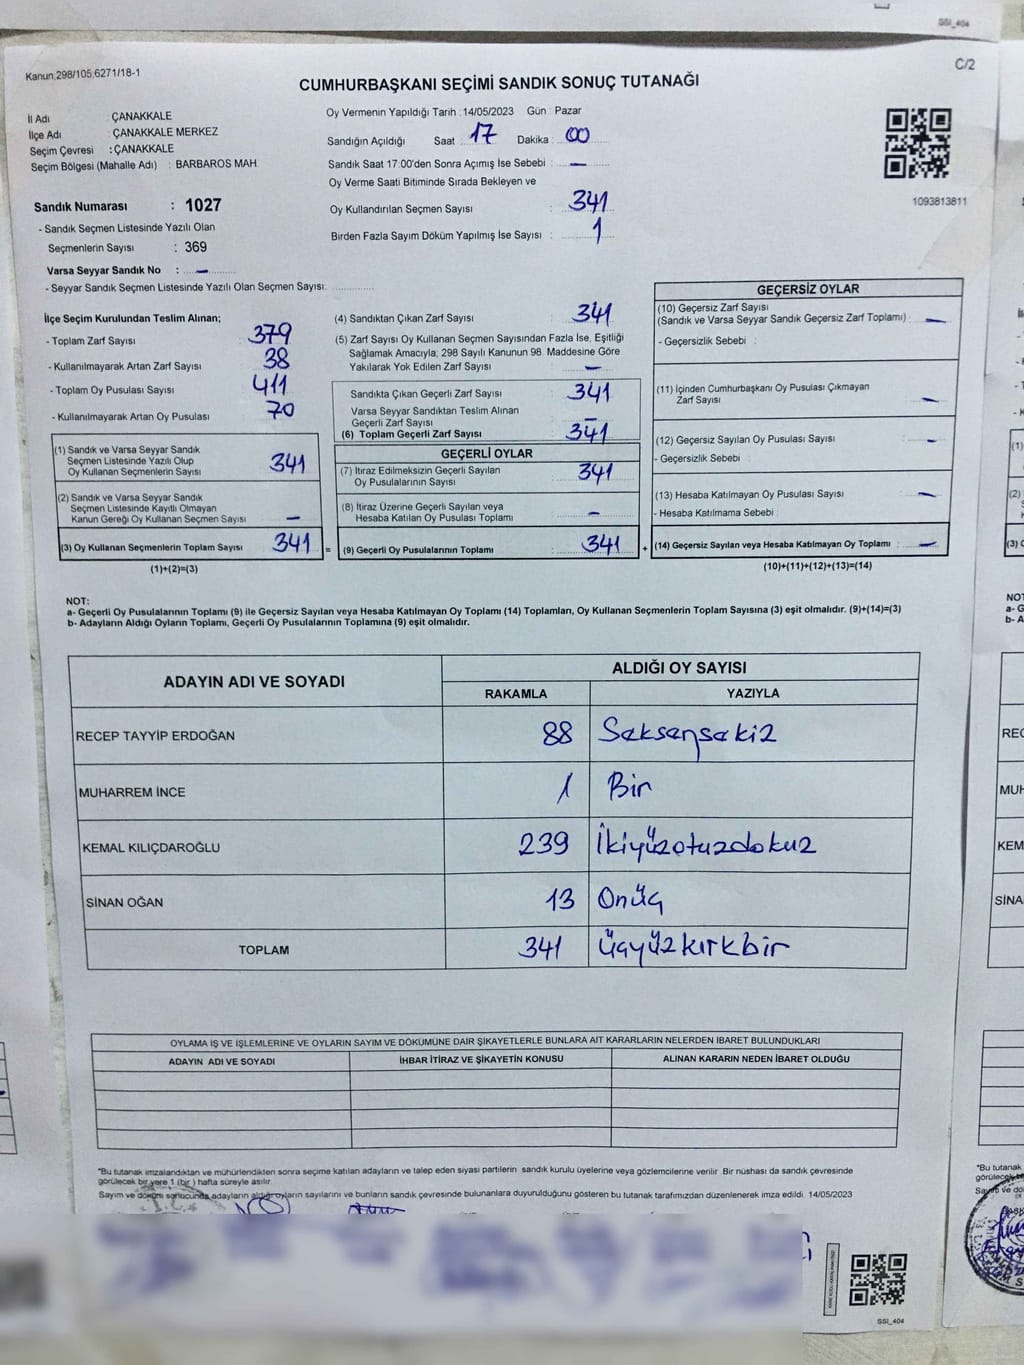 SSI_404
Kanun:298/105;6271/18-1
C/2
CUMHURBAŞKANI SEÇİMİ SANDIK SONUÇ TUTANAĞI
İl Adı : ÇANAKKALE
İlçe Adı : ÇANAKKALE MERKEZ
Seçim Çevresi : ÇANAKKALE
Seçim Bölgesi (Mahalle Adı) : BARBAROS MAH
Oy Vermenin Yapıldığı Tarih : 14/05/2023 Gün : Pazar
Sandığın Açıldığı Saat : 17 Dakika : 00
Sandık Saat 17:00'den Sonra Açımış İse Sebebi : –
Oy Verme Saati Bitiminde Sırada Bekleyen ve
Oy Kullandırılan Seçmen Sayısı : 341
Birden Fazla Sayım Döküm Yapılmış İse Sayısı : 1
1093813811
Sandık Numarası : 1027
- Sandık Seçmen Listesinde Yazılı Olan
Seçmenlerin Sayısı : 369
Varsa Seyyar Sandık No : –
- Seyyar Sandık Seçmen Listesinde Yazılı Olan Seçmen Sayısı:
İlçe Seçim Kurulundan Teslim Alınan;
- Toplam Zarf Sayısı 379
- Kullanılmayarak Artan Zarf Sayısı 38
- Toplam Oy Pusulası Sayısı 411
- Kullanılmayarak Artan Oy Pusulası 70
(1) Sandık ve Varsa Seyyar Sandık
Seçmen Listesinde Yazılı Olup
Oy Kullanan Seçmenlerin Sayısı 341
(2) Sandık ve Varsa Seyyar Sandık
Seçmen Listesinde Kayıtlı Olmayan
Kanun Gereği Oy Kullanan Seçmen Sayısı –
(3) Oy Kullanan Seçmenlerin Toplam Sayısı 341 =
(1)+(2)=(3)
(4) Sandıktan Çıkan Zarf Sayısı : 341
(5) Zarf Sayısı Oy Kullanan Seçmen Sayısından Fazla İse, Eşitliği
Sağlamak Amacıyla; 298 Sayılı Kanunun 98. Maddesine Göre
Yakılarak Yok Edilen Zarf Sayısı –
Sandıkta Çıkan Geçerli Zarf Sayısı : 341
Varsa Seyyar Sandıktan Teslim Alınan
Geçerli Zarf Sayısı : –
(6) Toplam Geçerli Zarf Sayısı : 341
GEÇERLİ OYLAR
(7) İtiraz Edilmeksizin Geçerli Sayılan
Oy Pusulalarının Sayısı : 341
(8) İtiraz Üzerine Geçerli Sayılan veya
Hesaba Katılan Oy Pusulası Toplamı : –
(9) Geçerli Oy Pusulalarının Toplamı : 341 +
GEÇERSİZ OYLAR
(10) Geçersiz Zarf Sayısı
(Sandık ve Varsa Seyyar Sandık Geçersiz Zarf Toplamı) : –
- Geçersizlik Sebebi :
(11) İçinden Cumhurbaşkanı Oy Pusulası Çıkmayan
Zarf Sayısı : –
(12) Geçersiz Sayılan Oy Pusulası Sayısı : –
- Geçersizlik Sebebi :
(13) Hesaba Katılmayan Oy Pusulası Sayısı : –
- Hesaba Katılmama Sebebi :
(14) Geçersiz Sayılan veya Hesaba Katılmayan Oy Toplamı : –
(10)+(11)+(12)+(13)=(14)
NOT:
a- Geçerli Oy Pusulalarının Toplamı (9) ile Geçersiz Sayılan veya Hesaba Katılmayan Oy Toplamı (14) Toplamları, Oy Kullanan Seçmenlerin Toplam Sayısına (3) eşit olmalıdır. (9)+(14)=(3)
b- Adayların Aldığı Oyların Toplamı, Geçerli Oy Pusulalarının Toplamına (9) eşit olmalıdır.
ADAYIN ADI VE SOYADI
ALDIĞI OY SAYISI
RAKAMLA YAZIYLA
RECEP TAYYİP ERDOĞAN 88 Seksensekiz
MUHARREM İNCE 1 Bir
KEMAL KILIÇDAROĞLU 239 İkiyüzotuzdokuz
SİNAN OĞAN 13 Onüç
TOPLAM 341 Üçyüzkırkbir
OYLAMA İŞ VE İŞLEMLERİNE VE OYLARIN SAYIM VE DÖKÜMÜNE DAİR ŞİKAYETLERLE BUNLARA AİT KARARLARIN NELERDEN İBARET BULUNDUKLARI
ADAYIN ADI VE SOYADI İHBAR İTİRAZ VE ŞİKAYETİN KONUSU ALINAN KARARIN NEDEN İBARET OLDUĞU
"Bu tutanak imzalandıktan ve mühürlendikten sonra seçime katılan adayların ve talep eden siyasi partilerin sandık kurulu üyelerine veya gözlemcilerine verilir. Bir nüshası da sandık çevresinde
görülecek bir yere 1 (bir) hafta süreyle asılır.
Sayım ve döküm sonucunda adayların aldığı oyların sayılarını ve bunların sandık çevresinde bulunanlara duyurulduğunu gösteren bu tutanak tarafımızdan düzenlenerek imza edildi. 14/05/2023
SSI_404